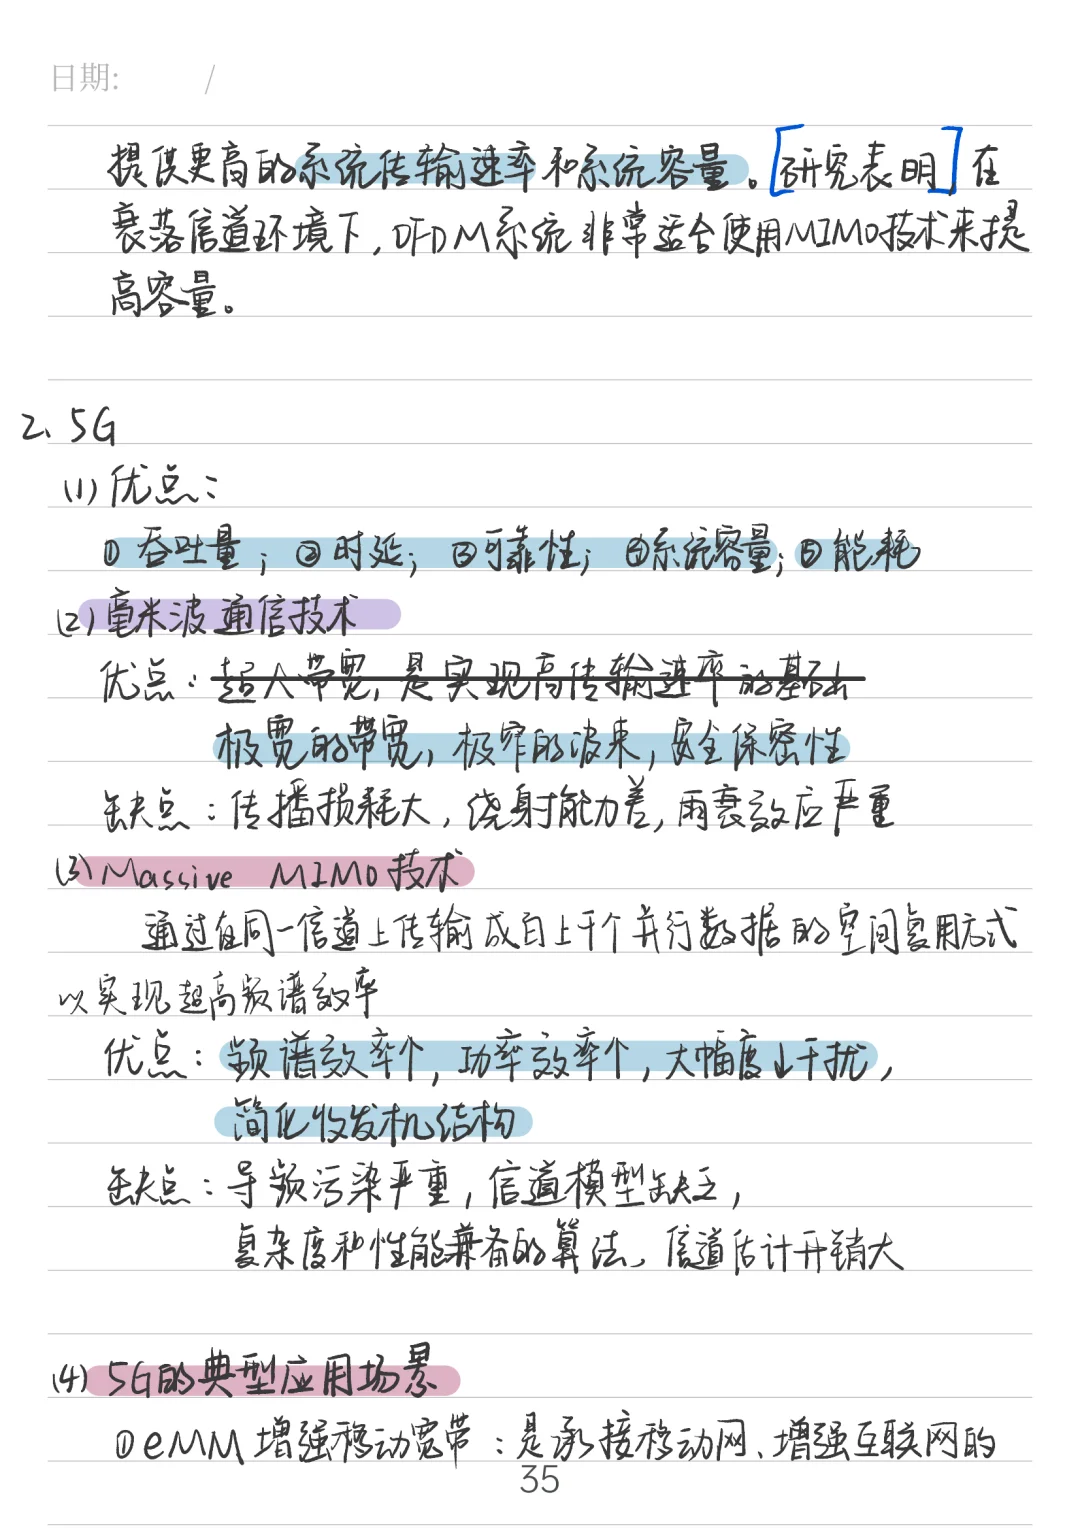 日期: /
提供更高的系统传输速率和系统容量。[研究表明]在
衰落信道环境下,OFDM系统非常适合使用MIMO技术来提
高容量。
2、5G
(1)优点:
①吞吐量;②时延;③可靠性;④系统容量;⑤能耗
(2)毫米波通信技术
优点:超大带宽,是实现高传输速率的基础
极宽的带宽,极窄的波束,安全保密性
缺点:传播损耗大,绕射能力差,雨衰效应严重
(3)Massive MIMO技术
通过在同一信道上传输成百上千个并行数据的空间复用方式
以实现超高频谱效率
优点:频谱效率个,功率效率个,大幅度↓干扰,
简化收发机结构
缺点:导频污染严重,信道模型缺乏,
复杂度和性能兼备的算法、信道估计开销大
(4)5G的典型应用场景
①eMM增强移动宽带:是承接移动网、增强互联网的
35